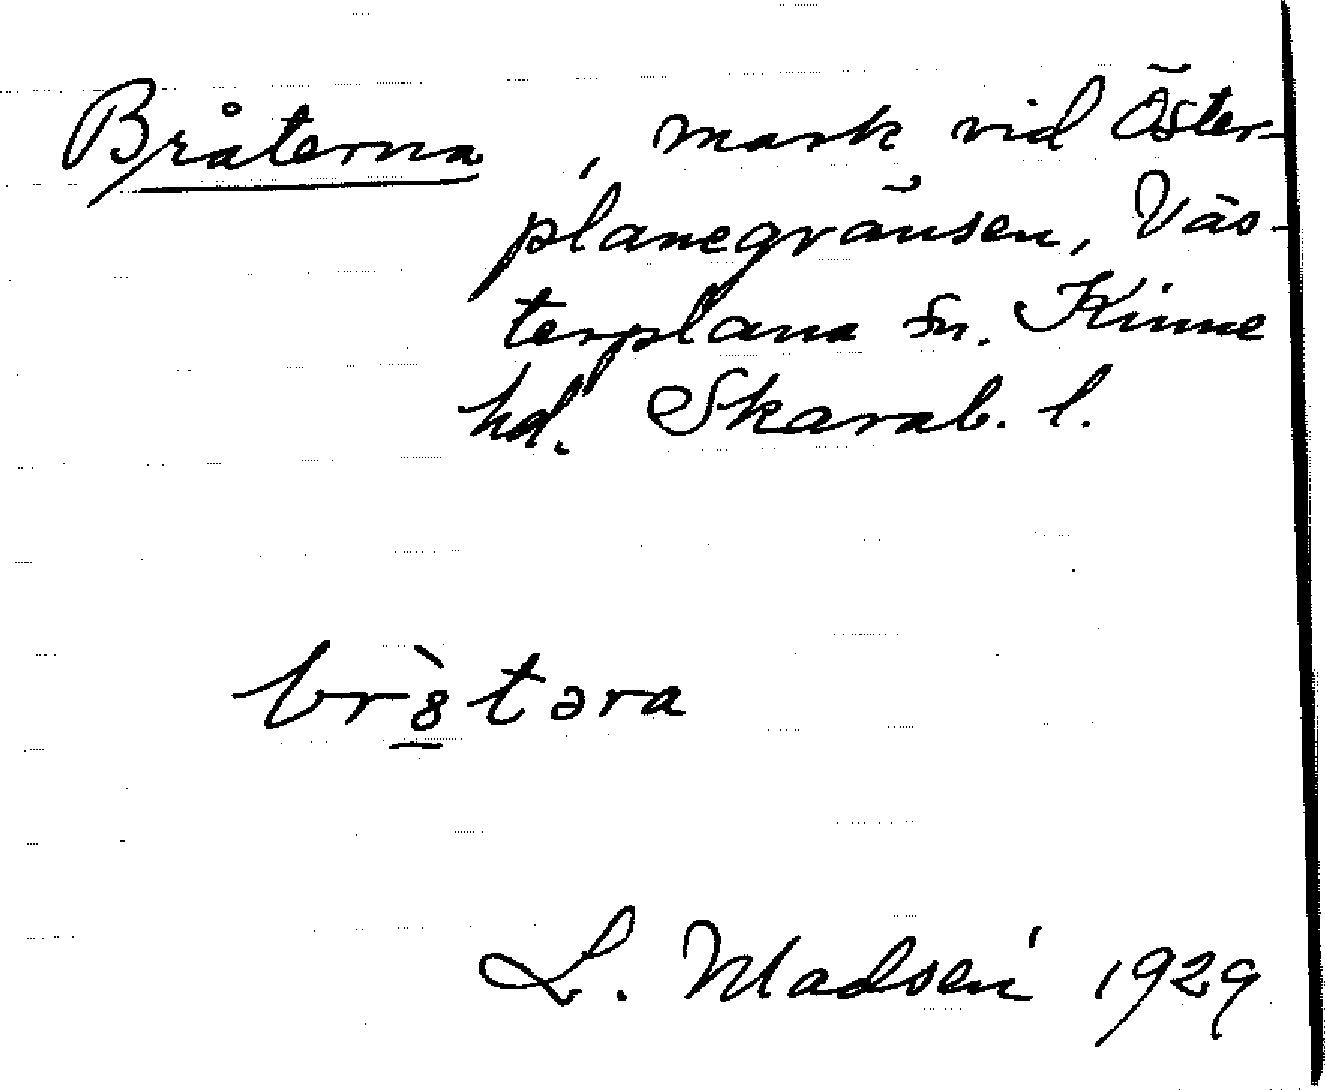 Bråterna, mark vid Öster-
planegränsen, Väs-
terplana sn. Kinne
hd. Skarab. l.
br8̲̀təra
L. Madsén 1929